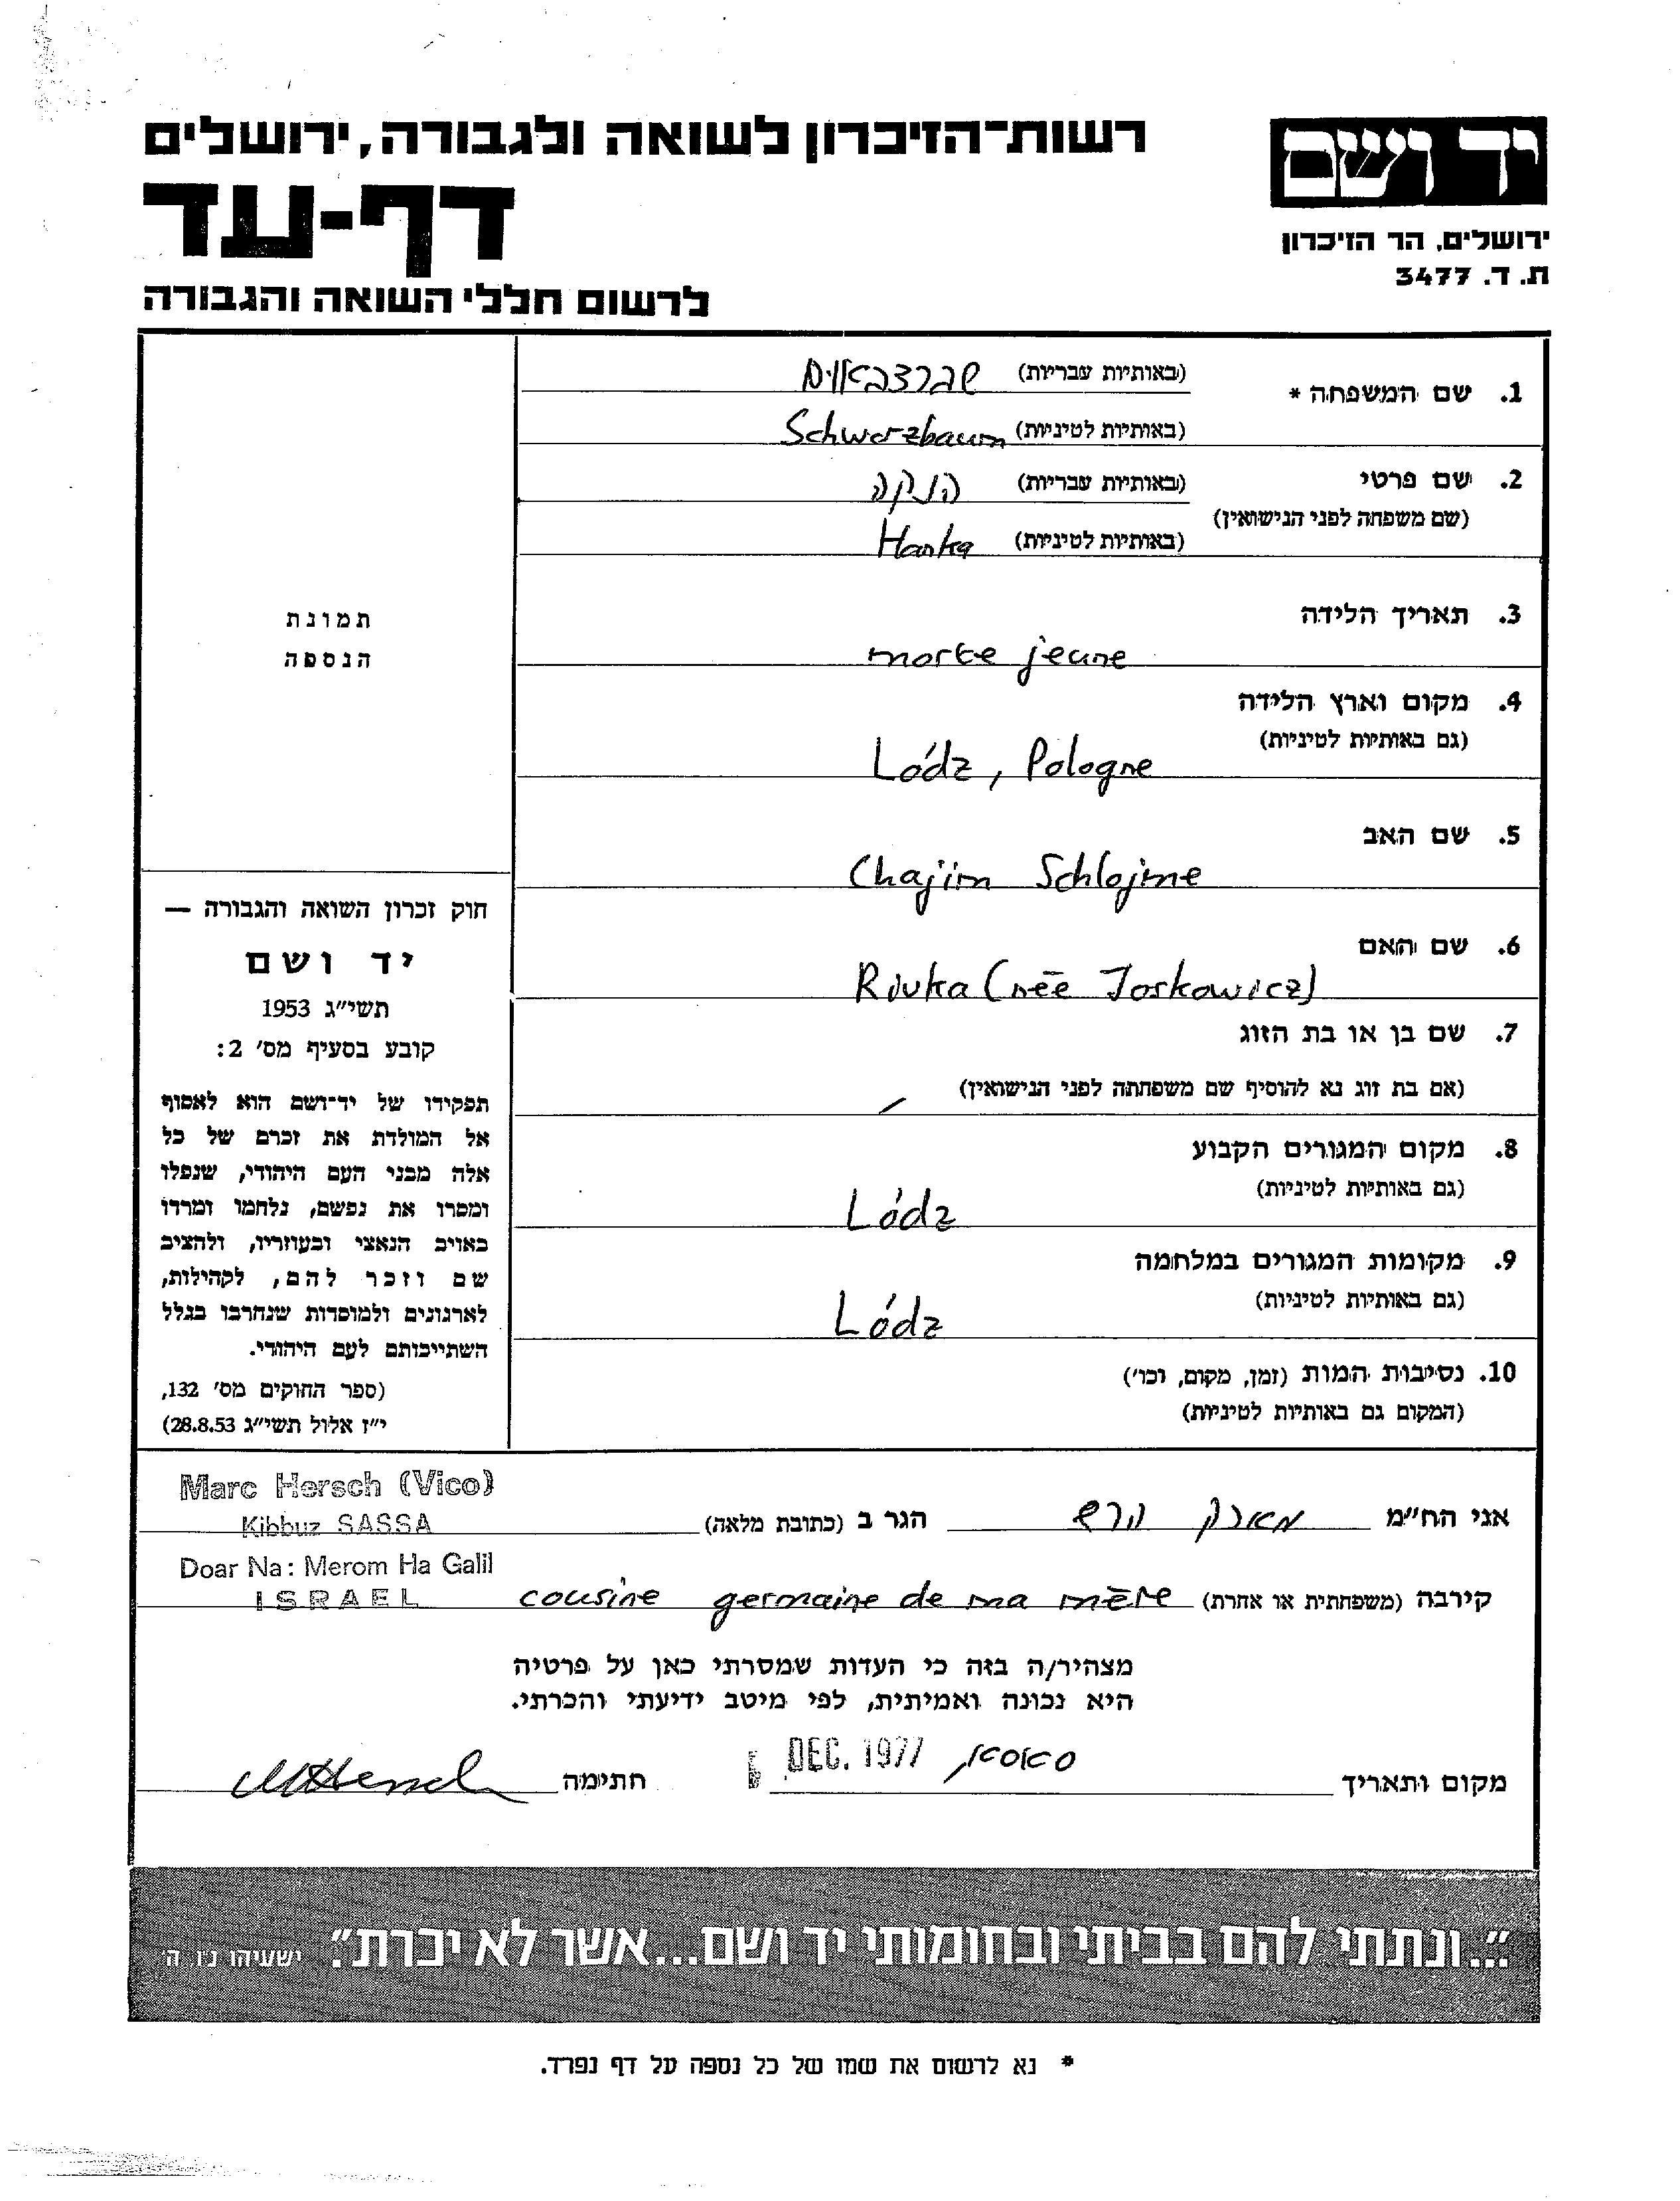 רשות־הזיכרון לשואה ולגבורה, ירושלים
דף-עד
לרשום חללי השואה והגבורה
יד ושם
ירושלים, הר הזיכרון
ת. ד. 3477
1. שם המשפחה *
(באותיות עבריות) שברצבאום
(באותיות לטיניות) Schwarzbaum
2. שם פרטי
(שם משפחה לפני הנישואין)
(באותיות עבריות) הנקה
(באותיות לטיניות) Hanka
3. תאריך הלידה
morte jeune
4. מקום וארץ הלידה
(גם באותיות לטיניות)
Lódz, Pologne
5. שם האב
Chajim Schlojme
6. שם האם
Rivka (née Joskowicz)
7. שם בן או בת הזוג
(אם בת זוג נא להוסיף שם משפחתה לפני הנישואין)
8. מקום המגורים הקבוע
(גם באותיות לטיניות)
Lódz
9. מקומות המגורים במלחמה
(גם באותיות לטיניות)
Lódz
10. נסיבות המות (זמן, מקום, וכו')
(המקום גם באותיות לטיניות)
תמונת
הנספה
חוק זכרון השואה והגבורה —
יד ושם
תשי״ג 1953
קובע בסעיף מס׳ 2:
תפקידו של יד־ושם הוא לאסוף
אל המולדת את זכרם של כל
אלה מבני העם היהודי, שנפלו
ומסרו את נפשם, נלחמו ומרדו
באויב הנאצי ובעוזריו, ולהציב
שם וזכר להם, לקהילות,
לארגונים ולמוסדות שנחרבו בגלל
השתייכותם לעם היהודי.
(ספר החוקים מס׳ 132,
י״ז אלול תשי״ג 28.8.53)
אני הח״מ מארק הרש הגר ב (כתובת מלאה)
Marc Hersch (Vico)
Kibbuz SASSA
Doar Na: Merom Ha Galil
ISRAEL
קירבה (משפחתית או אחרת) cousine germaine de ma mère
מצהיר/ה בזה כי העדות שמסרתי כאן על פרטיה
היא נכונה ואמיתית, לפי מיטב ידיעתי והכרתי.
מקום ותאריך סאסא, DEC. 1977 חתימה MHersch
"...ונתתי להם בביתי ובחומותי יד ושם...אשר לא יכרת". ישעיהו נ״ו ה׳
* נא לרשום את שמו של כל נספה על דף נפרד.